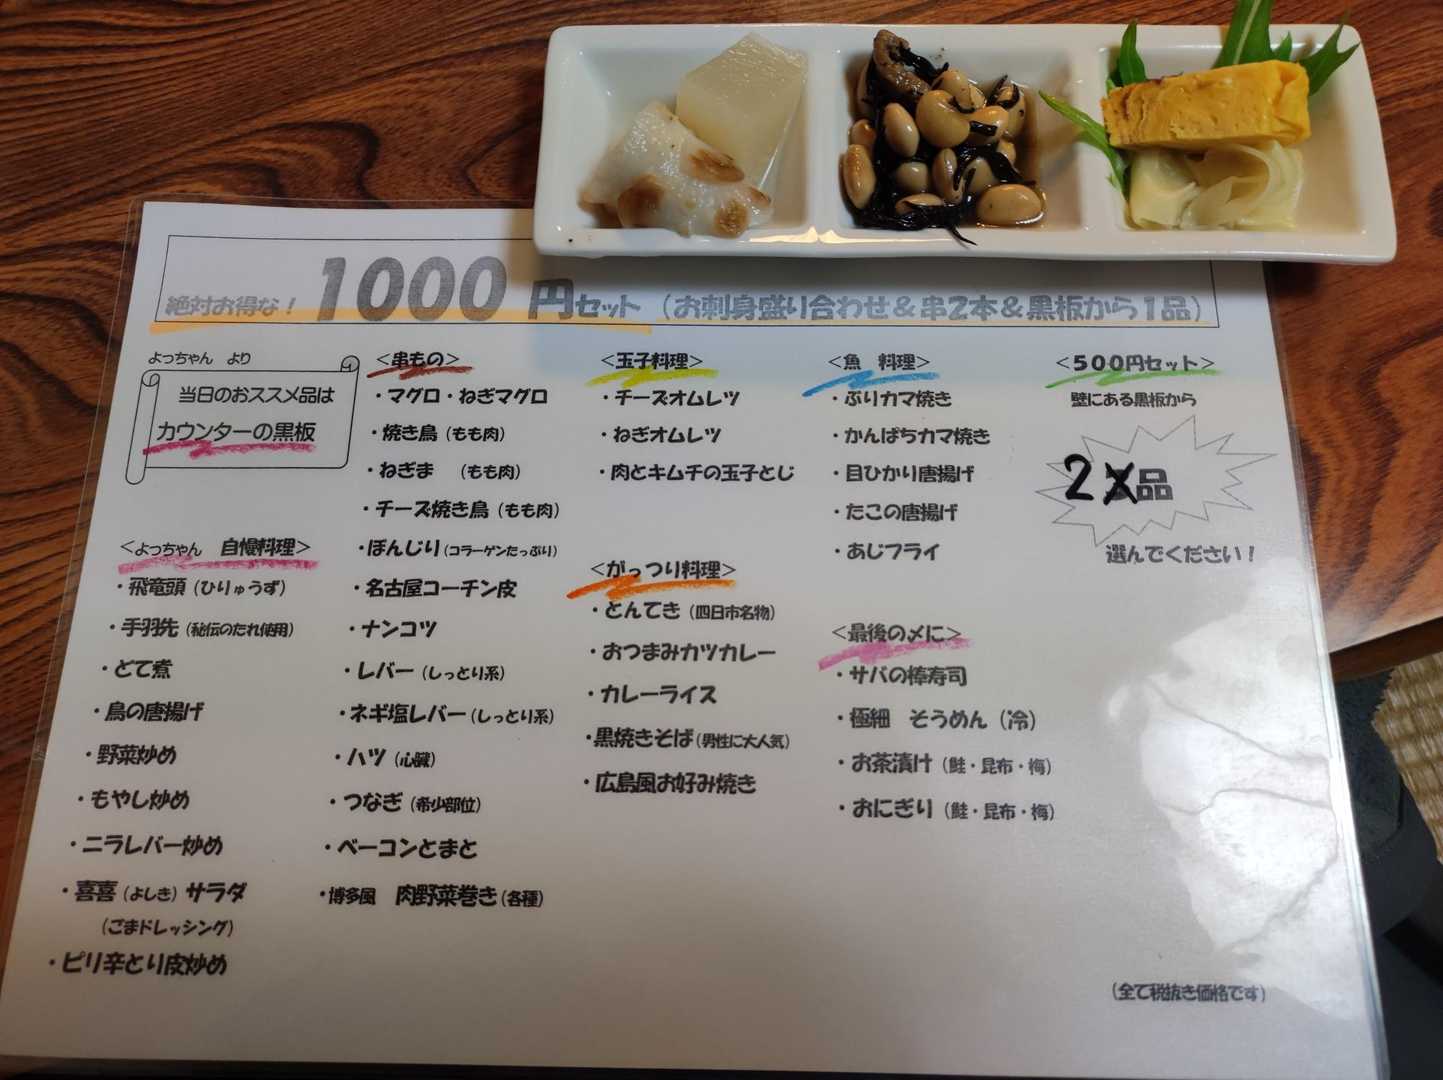 絶対お得な！ 1000円セット（お刺身盛り合わせ＆串2本＆黒板から1品）
よっちゃん より
当日のおススメ品は
カウンターの黒板
＜よっちゃん 自慢料理＞
・飛竜頭（ひりゅうず）
・手羽先（秘伝のたれ使用）
・どて煮
・鳥の唐揚げ
・野菜炒め
・もやし炒め
・ニラレバー炒め
・喜喜（よしき）サラダ
（ごまドレッシング）
・ピリ辛とり皮炒め
＜串もの＞
・マグロ・ねぎマグロ
・焼き鳥（もも肉）
・ねぎま （もも肉）
・チーズ焼き鳥（もも肉）
・ぼんじり（コラーゲンたっぷり）
・名古屋コーチン皮
・ナンコツ
・レバー（しっとり系）
・ネギ塩レバー（しっとり系）
・ハツ（心臓）
・つなぎ（希少部位）
・ベーコンとまと
・博多風 肉野菜巻き（各種）
＜玉子料理＞
・チーズオムレツ
・ねぎオムレツ
・肉とキムチの玉子とじ
＜がっつり料理＞
・とんてき（四日市名物）
・おつまみカツカレー
・カレーライス
・黒焼きそば（男性に大人気）
・広島風お好み焼き
＜魚 料理＞
・ぶりカマ焼き
・かんぱちカマ焼き
・目ひかり唐揚げ
・たこの唐揚げ
・あじフライ
＜最後の〆に＞
・サバの棒寿司
・極細 そうめん（冷）
・お茶漬け（鮭・昆布・梅）
・おにぎり（鮭・昆布・梅）
＜500円セット＞
壁にある黒板から
2品
選んでください！
（全て税抜き価格です）